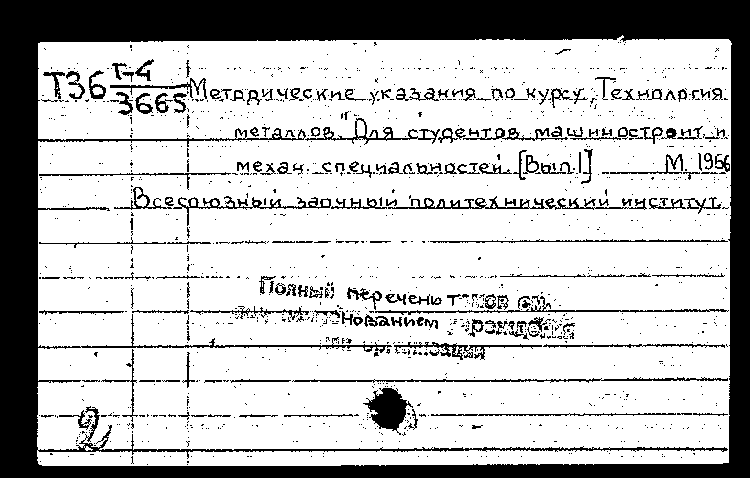 Т36 Т-4/3665 Методические указания по курсу „Технология
металлов." Для студентов машиностроит. и
механ. специальностей. [Вып.1] М, 1956
Всесоюзный заочный политехнический институт.
Полный перечень томов см.
под наименованием учреждения
или организации
2